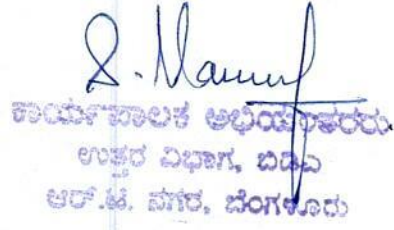 ಕಾರ್ಯಪಾಲಕ ಅಭಿಯಂತರರು.
ಉತ್ತರ ವಿಭಾಗ, ಬಿಡಿಎ
ಆರ್.ಟಿ. ನಗರ, ಬೆಂಗಳೂರು